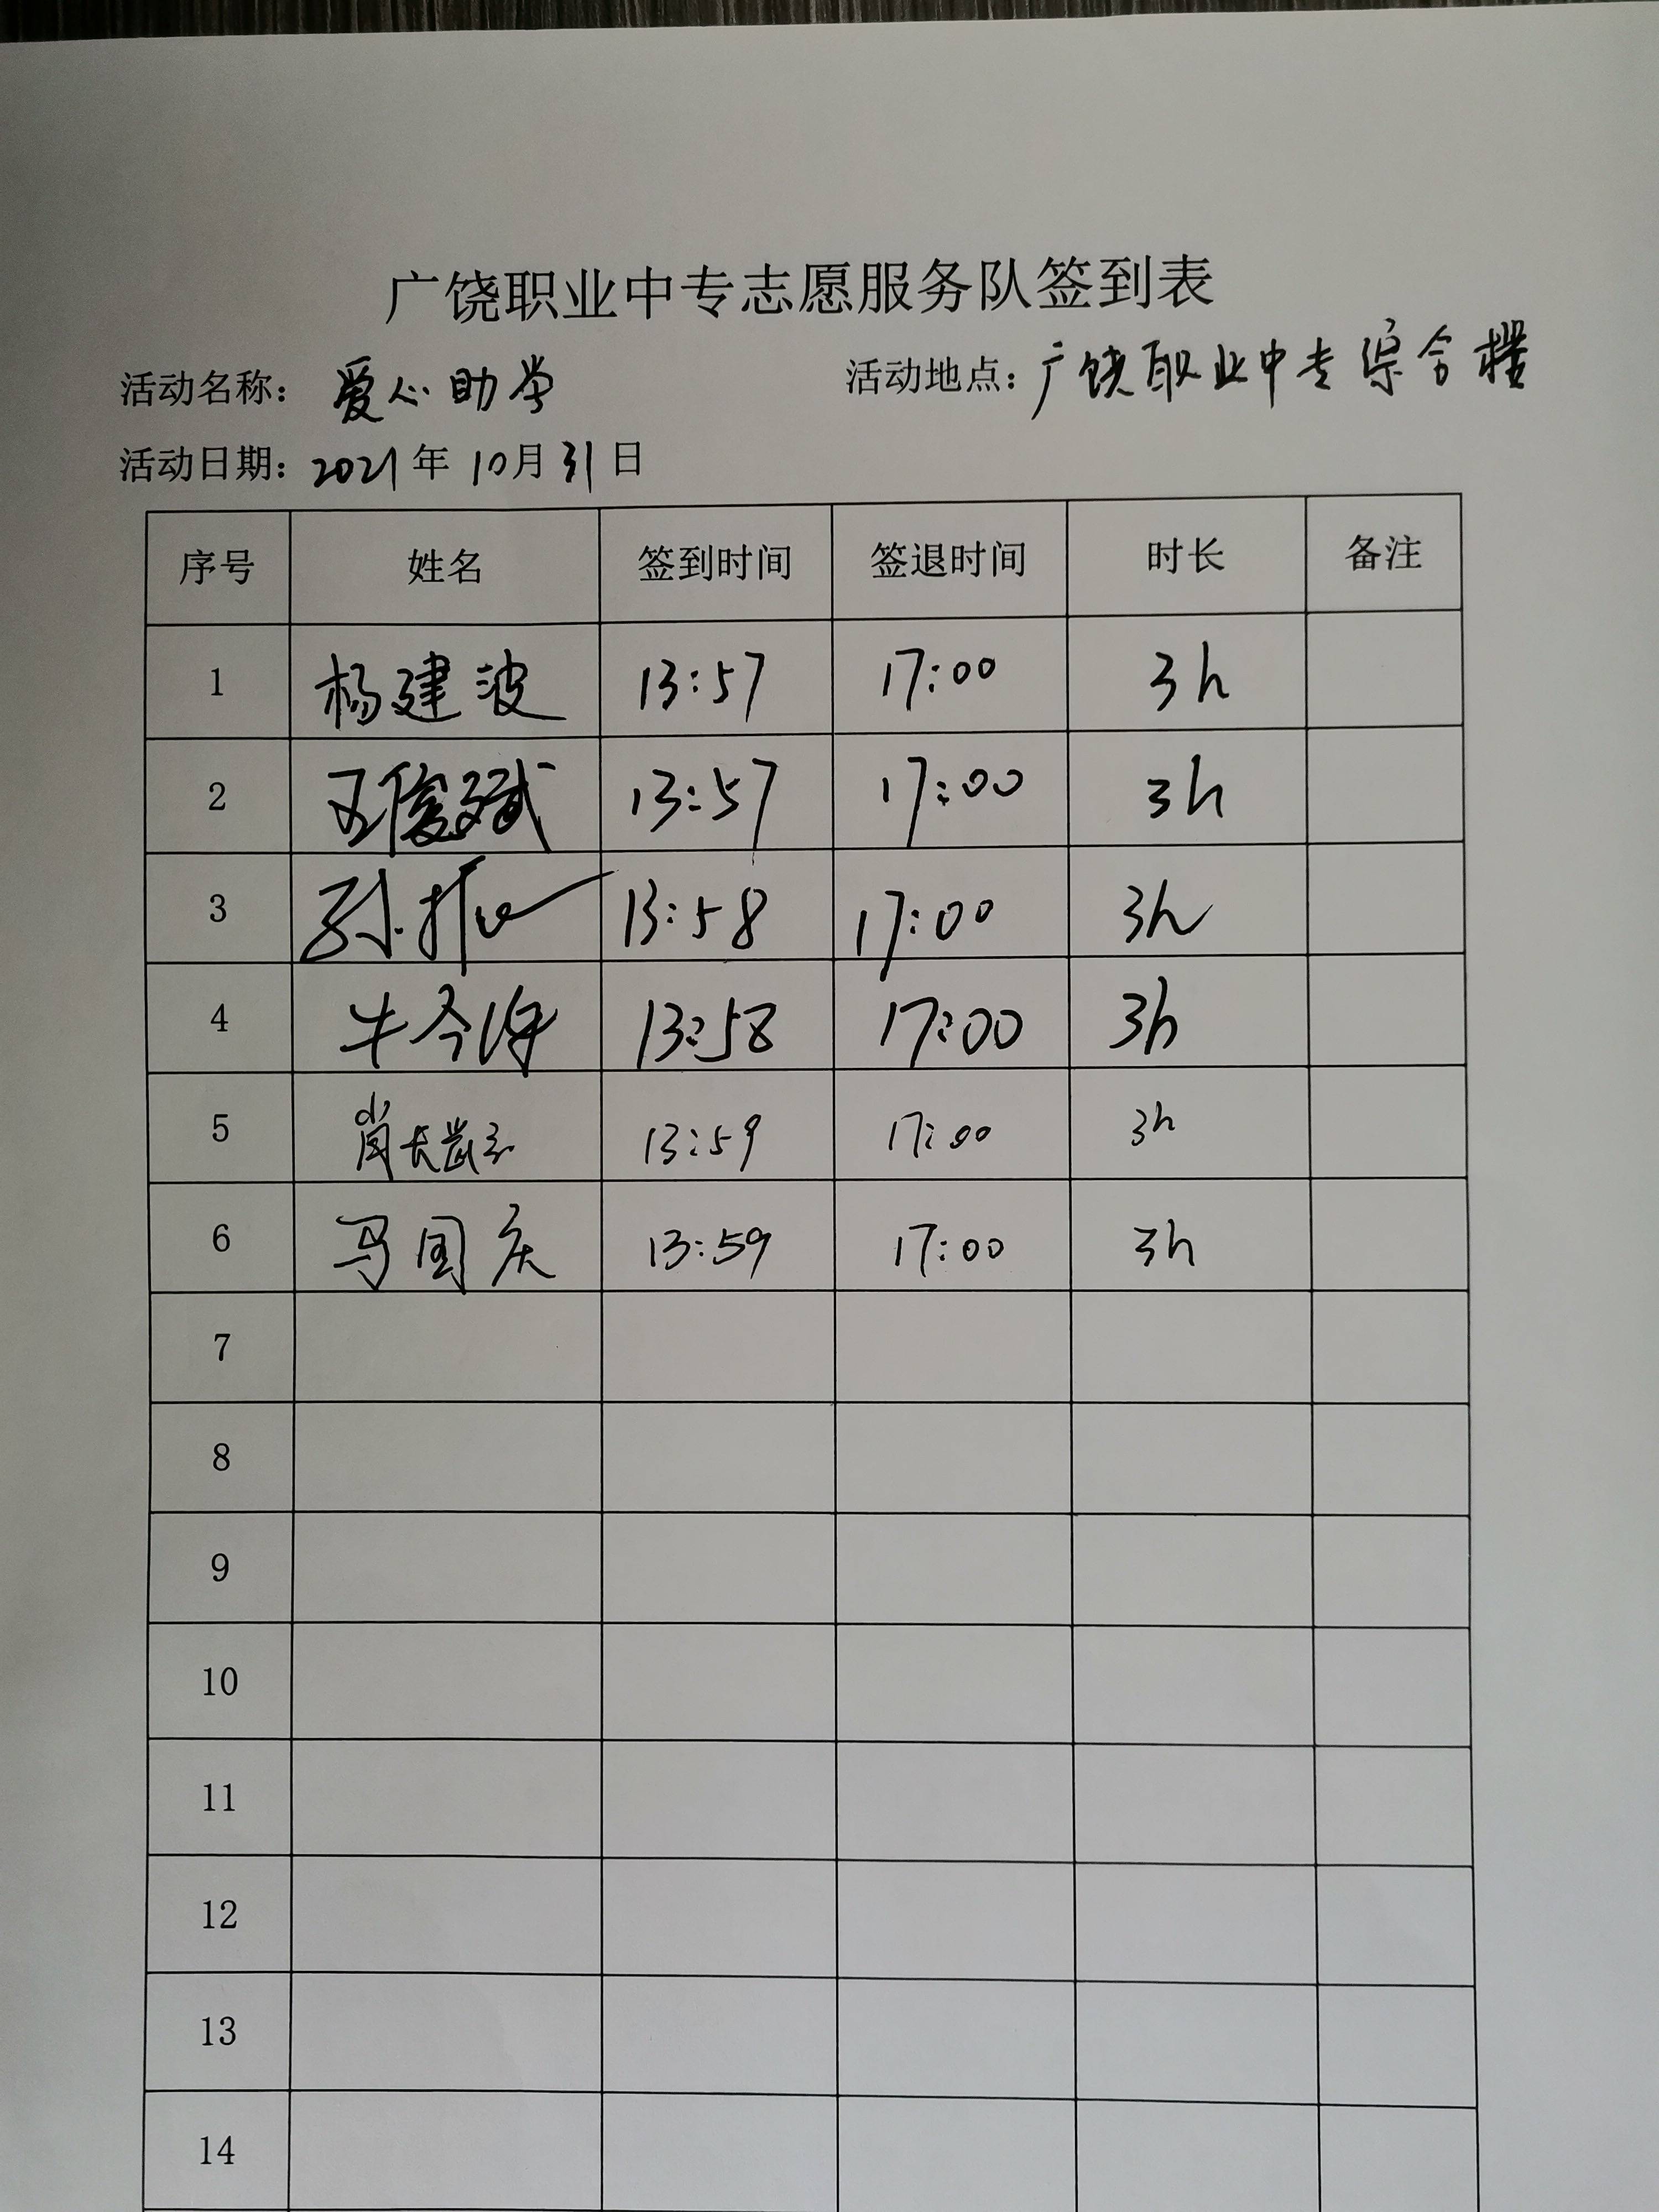 广饶职业中专志愿服务队签到表
活动名称：爱心助学 活动地点：广饶职业中专综合楼
活动日期：2021年10月31日
序号 姓名 签到时间 签退时间 时长 备注
1 杨建波 13:57 17:00 3h
2 王俊斌 13:57 17:00 3h
3 孙 13:58 17:00 3h
4 牛 13:58 17:00 3h
5 肖 13:59 17:00 3h
6 马国庆 13:59 17:00 3h
7
8
9
10
11
12
13
14